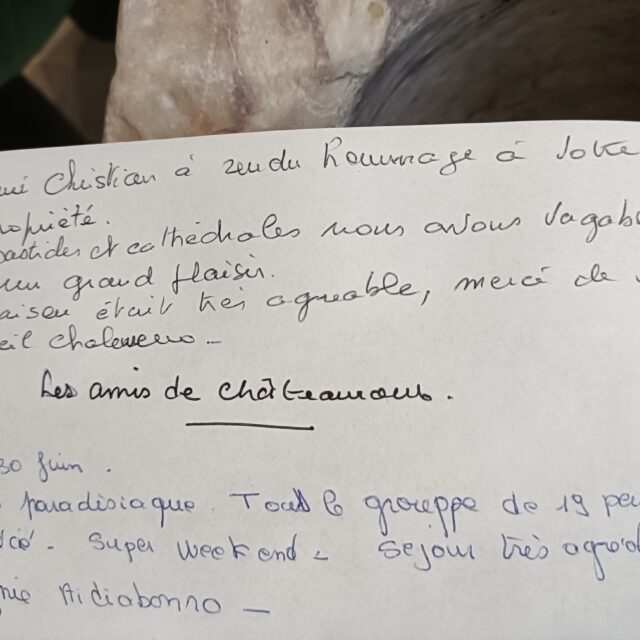 Christian à rendu hommage à votre
ropriété.
bastides et cathédrales nous avons vagabo
un grand plaisir.
aison était très agréable, merci de
eil chaleureux -
Les amis de châteaurous.
30 Juin.
paradisiaque. Tout le grouppe de 19 per
Super weekend - Sejour très agréa